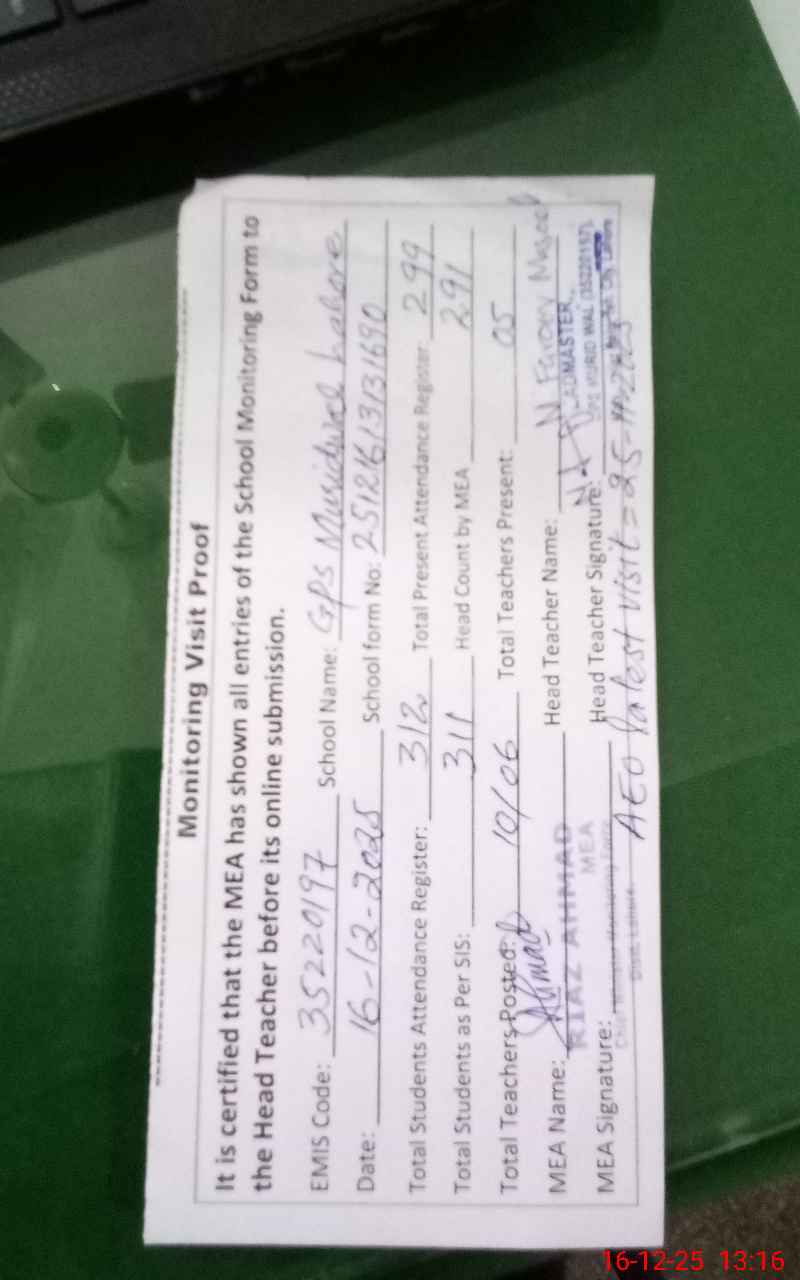 Monitoring Visit Proof
It is certified that the MEA has shown all entries of the School Monitoring Form to
the Head Teacher before its online submission.
EMIS Code: 35220197 School Name: GPS Muridwal Lahore
Date: 16-12-2025 School form No: 25121613131690
Total Students Attendance Register: 312 Total Present Attendance Register: 299
Total Students as Per SIS: 311 Head Count by MEA 291
Total Teachers Posted: 10/06 Total Teachers Present: 05
MEA Name: Ahmad Head Teacher Name: N Farooq Masood
RIAZ AHMAD
MEA
HEADMASTER
GPS MURID WAL (35220197)
MEA Signature: Head Teacher Signature:
Chief Minister Monitoring Force
Distt. Lahore
AEO latest visit = 25-11-2025
16-12-25 13:16